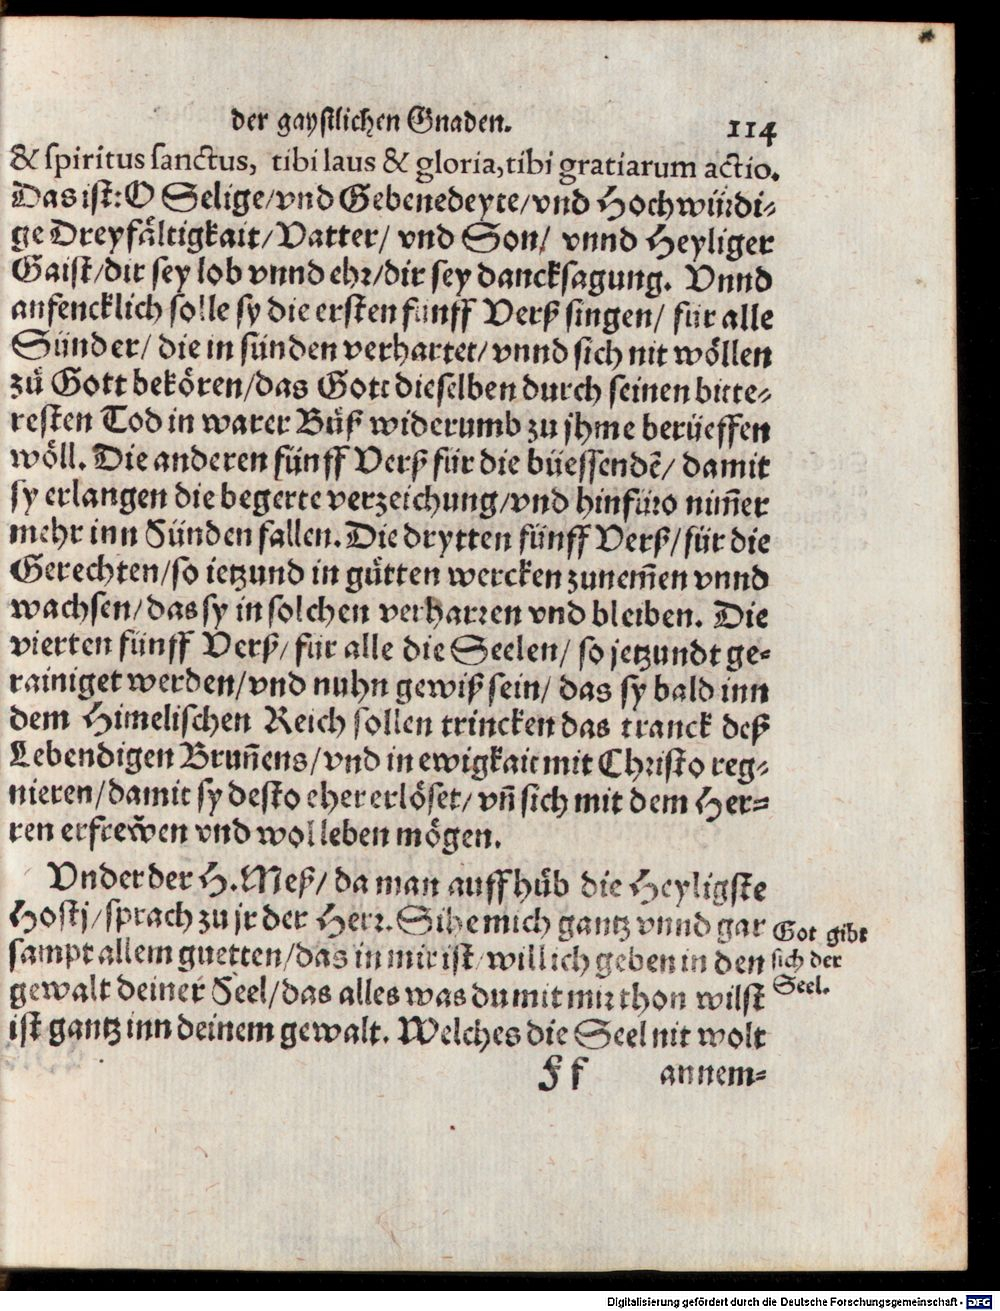 der gaystlichen Gnaden. 114
& spiritus sanctus, tibi laus & gloria, tibi gratiarum actio.
Das ist: O Selige/vnd Gebenedeyte/vnd Hochwürdi-
ge Dreyfåltigkait/Vatter/ vnd Son/ vnnd Heyliger
Gaist/dir sey lob vnnd ehr/dir sey dancksagung. Vnnd
anfencklich solle sy die ersten fünff Verß singen/ für alle
Sünder/ die in sünden verhartet/ vnnd sich nit wöllen
zů Gott bekören/das Gott dieselben durch seinen bitte-
resten Tod in warer Bůß widerumb zu jhme berüeffen
wöll. Die anderen fünff Verß für die büessendẽ/ damit
sy erlangen die begerte verzeichung/vnd hinfüro nim̃er
mehr inn Sünden fallen. Die drytten fünff Verß/für die
Gerechten/so ietzund in gůtten wercken zunem̃en vnnd
wachsen/das sy in solchen verharren vnd bleiben. Die
vierten fünff Verß/ für alle die Seelen/ so jetzundt ge-
rainiget werden/vnd nuhn gewiß sein/ das sy bald inn
dem Himelischen Reich sollen trincken das tranck deß
Lebendigen Brun̄ens/vnd in ewigkait mit Christo reg-
nieren/damit sy desto eher erlöset/ vn̄ sich mit dem Her-
ren erfrewen vnd wol leben mögen.
Vnder der H. Meß/ da man auffhůb die Heyligste
Hostj/sprach zu jr der Herr. Sihe mich gantz vnnd gar
sampt allem guetten/das in mir ist/will ich geben in den
gewalt deiner Seel/das alles was du mit mir thon wilst
ist gantz inn deinem gewalt. Welches die Seel nit wolt
Got gibt
sich der
Seel.
Ff annem-
Digitalisierung gefördert durch die Deutsche Forschungsgemeinschaft - DFG